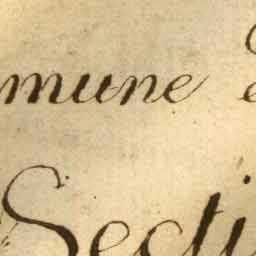 mune
Secti